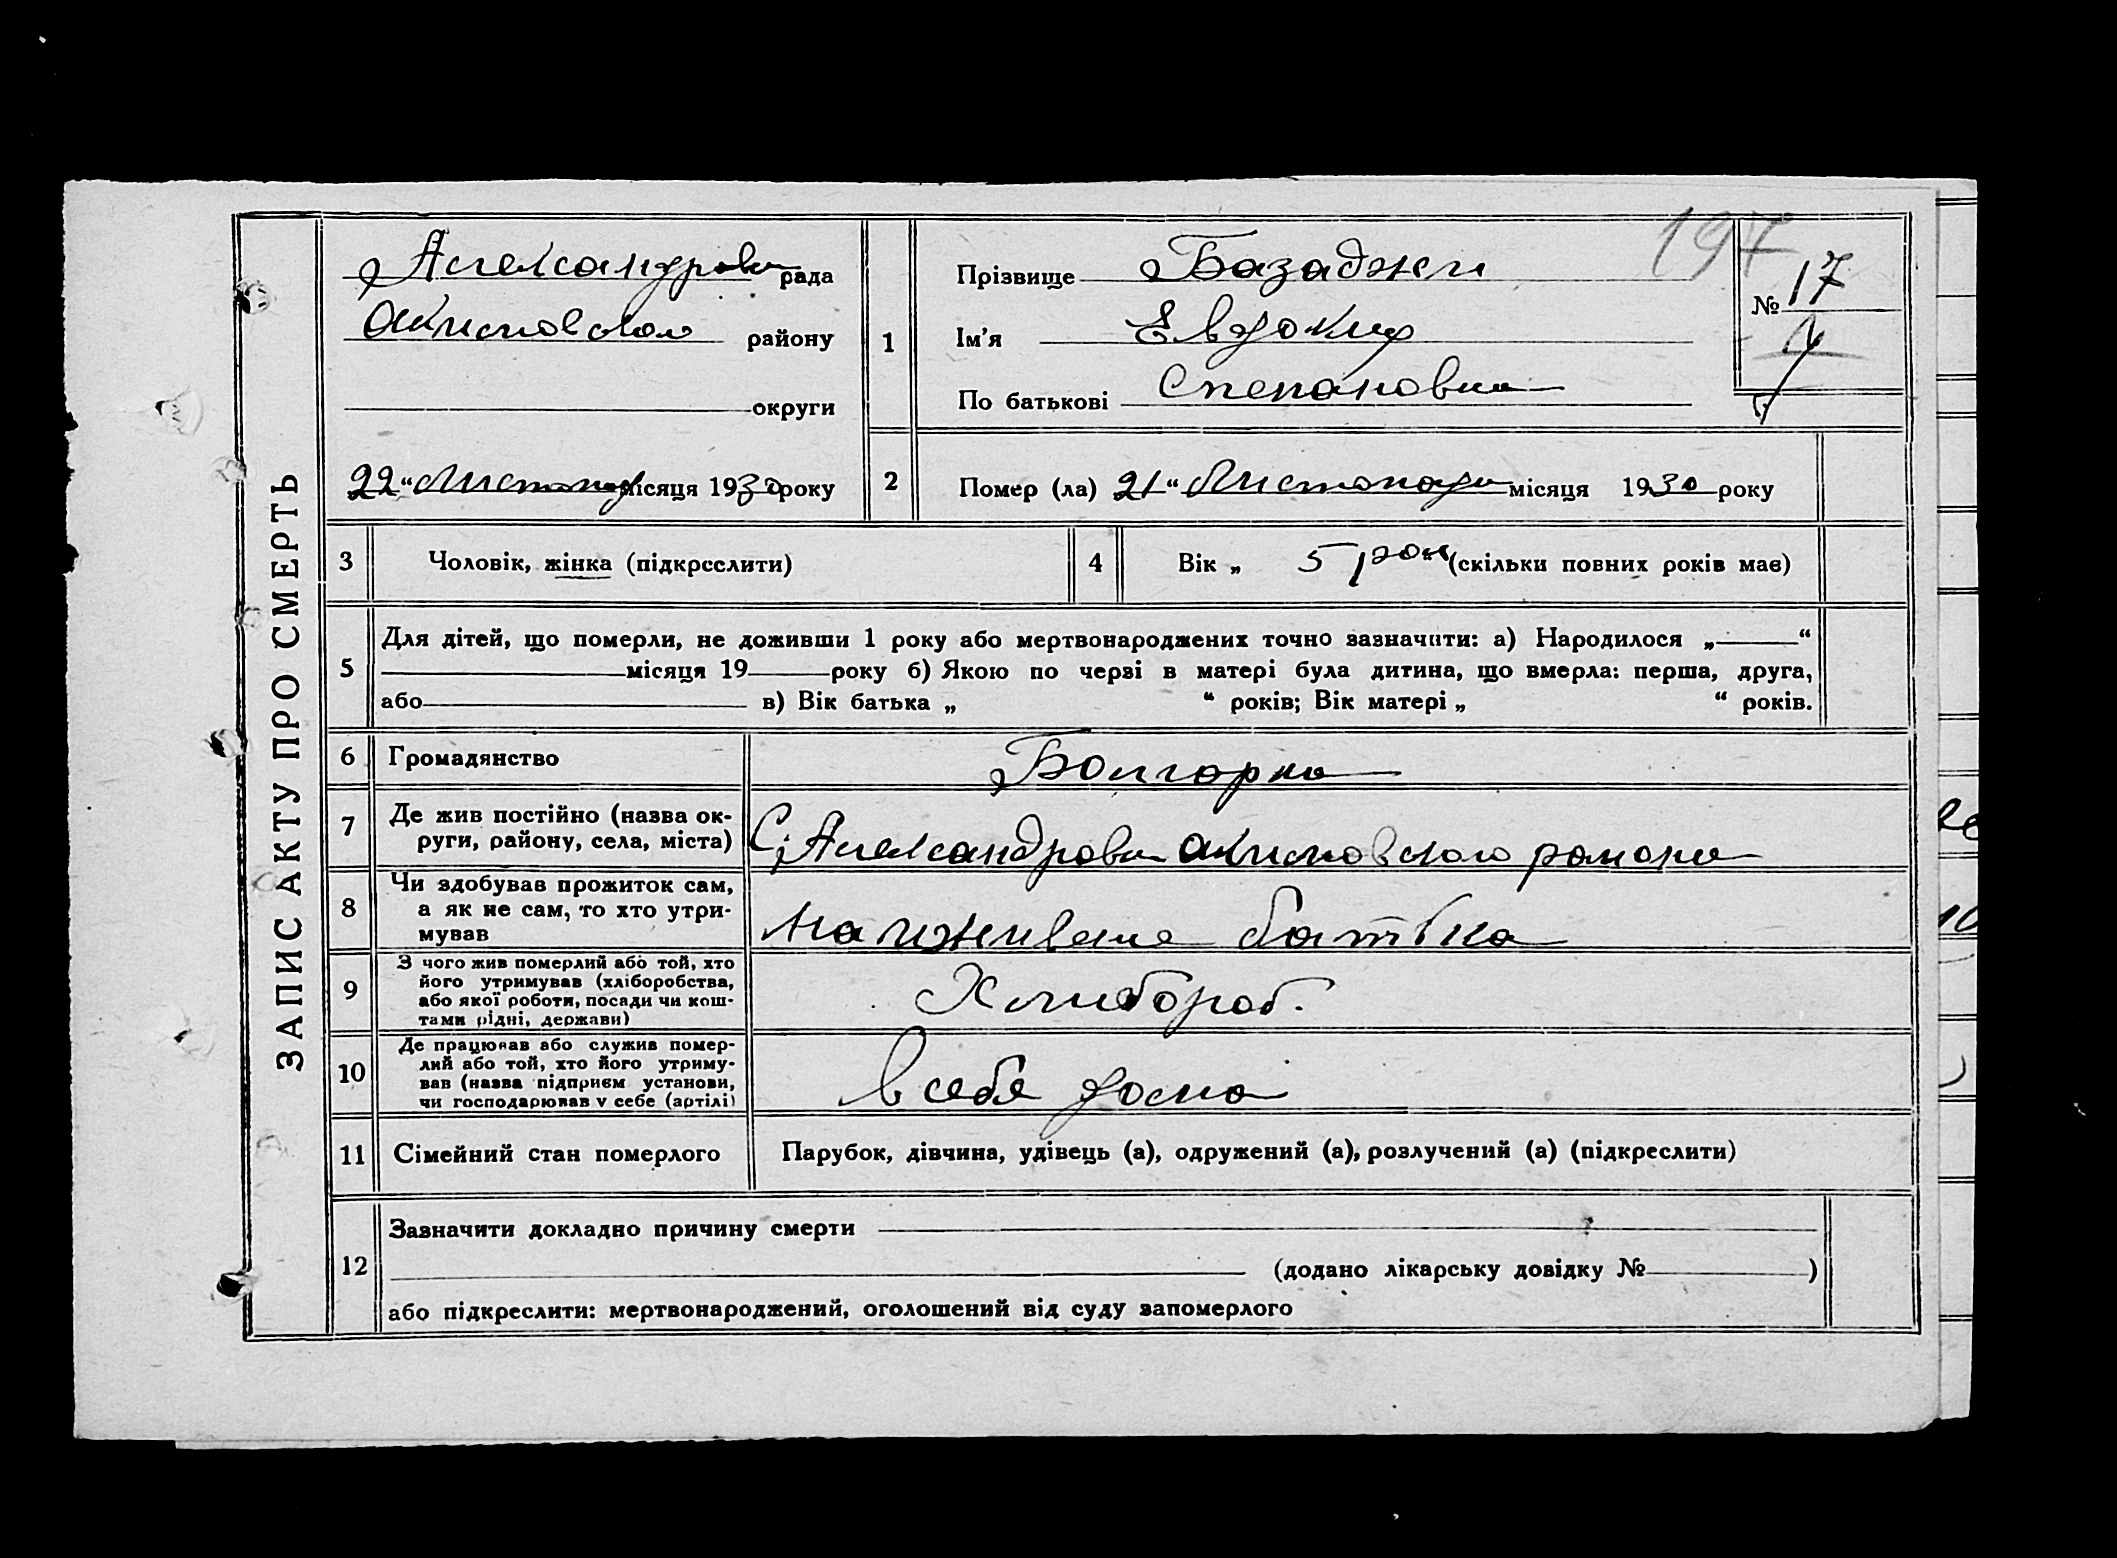 197
ЗАПИС АКТУ ПРО СМЕРТЬ
Александровка рада
Акимовского району
округи
22 “ Листопад місяця 1930 року
1
Прізвище Базаджи
Ім'я Евдокия
По батькові Степановна
№ 17
2
Помер (ла) 21 “ Листопада місяця 1930 року
3
Чоловік, жінка (підкреслити)
4
Вік „ 5 рок (скільки повних років має)
5
Для дітей, що померли, не доживши 1 року або мертвонароджених точно зазначити: а) Народилося „ “
місяця 19 року б) Якою по черзі в матері була дитина, що вмерла: перша, друга,
або в) Вік батька „ “ років; Вік матері „ “ років.
6
Громадянство
Болгарка
7
Де жив постійно (назва ок-
руги, району, села, міста)
С. Александровка Акимовского района
8
Чи здобував прожиток сам,
а як не сам, то хто утри-
мував
На иживеше батька
9
З чого жив померлий або той, хто
його утримував (хліборобства,
або якої роботи, посади чи кош-
тами рідні, держави)
Хлибороб.
10
Де працював або служив помер-
лий або той, хто його утриму-
вав (назва підприєм установи,
чи господарював у себе (артілі)
В себя дома
11
Сімейний стан померлого
Парубок, дівчина, удівець (а), одружений (а), розлучений (а) (підкреслити)
12
Зазначити докладно причину смерти
(додано лікарську довідку № )
або підкреслити: мертвонароджений, оголошений від суду запомерлого